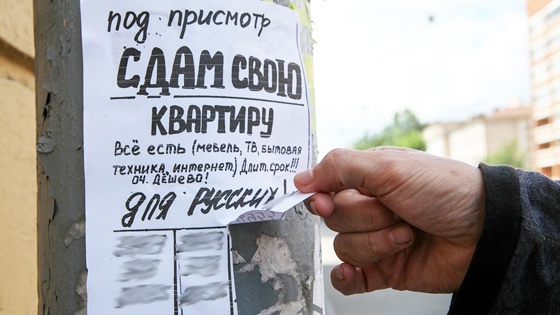 под присмотр
СДАМ СВОЮ
КВАРТИРУ
Всё есть (мебель, ТВ, бытовая
техника, интернет) Длит. срок!!!
ОЧ. ДЁШЕВО!
для русских!